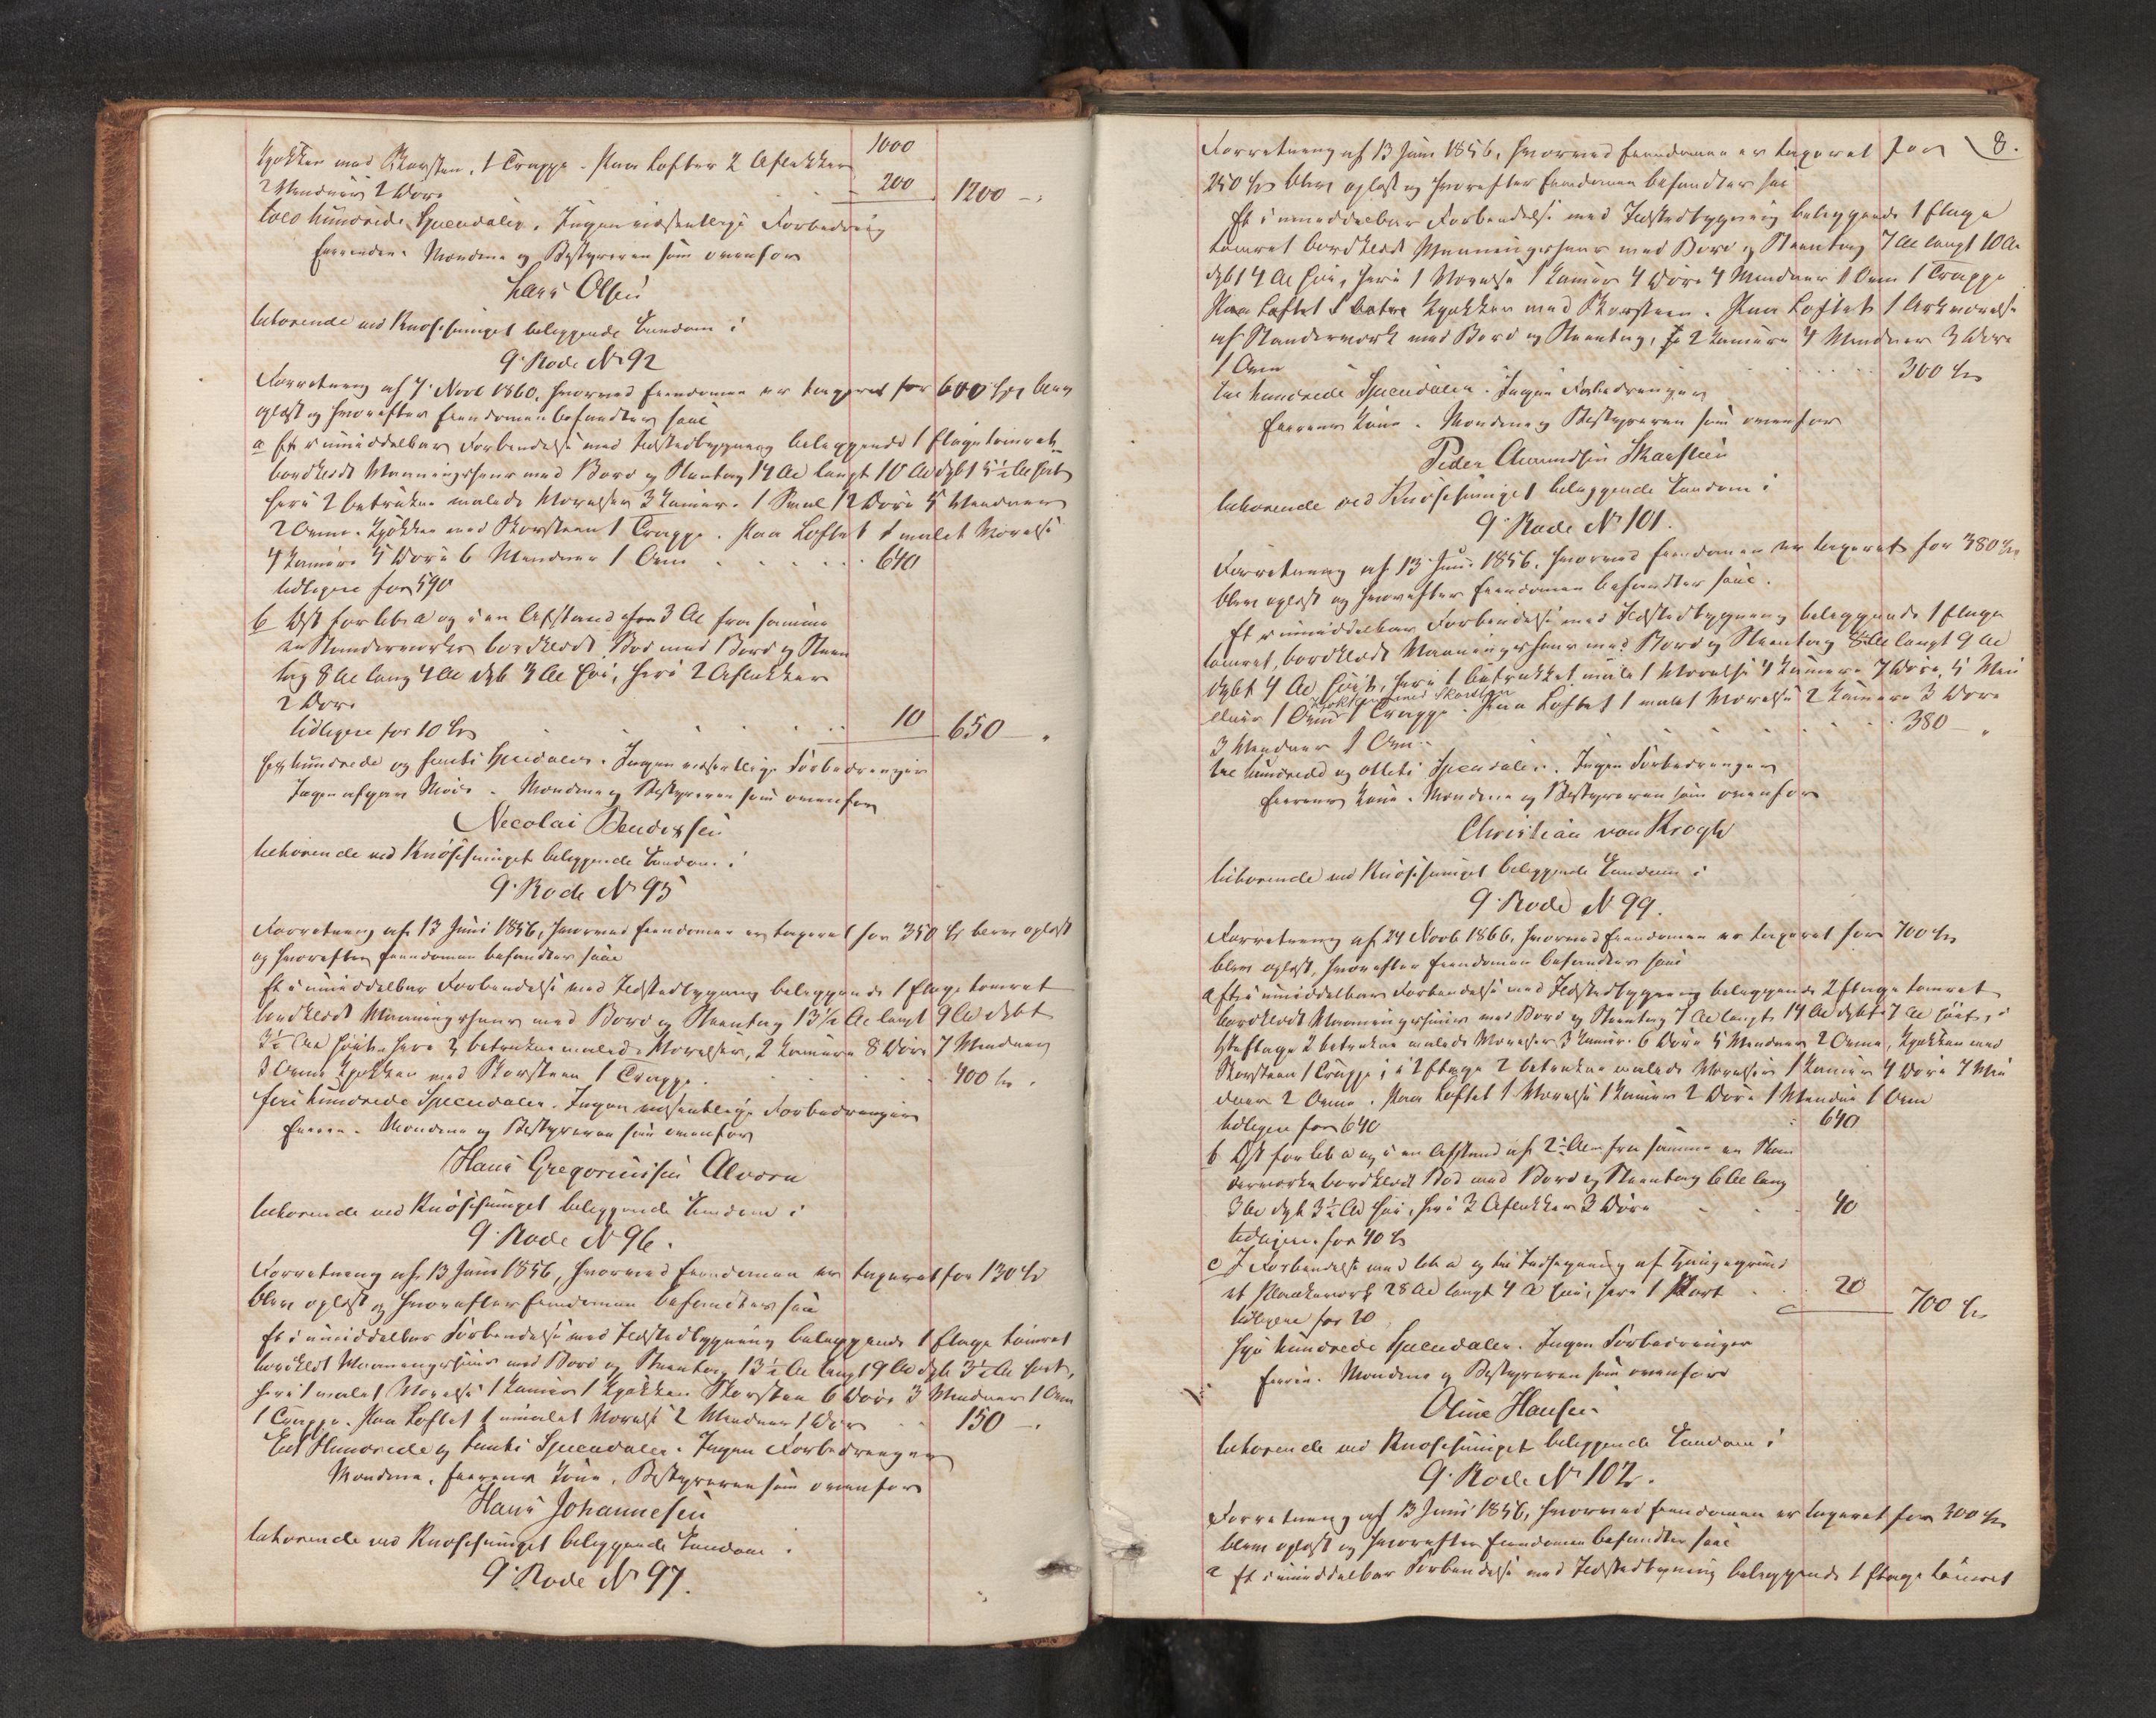 Kjøkken med Skorsten, 1 Trappe. Paa Loftet 2 Aflukker 1000
2 Vinduer 2 Døre 200 1200 –
tolv hundrede Speciedaler. Ingen væsentlige Forbedring
Eierinden. Mændene og Bestyreren som ovenfor
Lars Olsen
tilhørende ved Knøsesmuget beliggende Eiendom i
9. Rode No 92
Forretning af 7. Novb 1860, hvorved Eiendommen er taxeret for 600 Spd blev
oplæst og hvorefter Eiendommen befandtes saae
a Et i umiddelbar Forbindelse med Ildstedbygning beliggende 1 Etage tømret
bordklædt Vaaningshuus med Bord og Steentag 14 Al langt 10 Al dybt 5½ Al høit
heri 2 betrukne malede Værelser 3 Kamere. 1 Sval 12 Døre 5 Vinduer
2 Ovne. Kjøkken med Skorsteen 1 Trappe. Paa Loftet 1 malet Værelse
4 Kamere 5 Døre 6 Vinduer 1 Ovn 640
tidligere for 590
b Øst for litr a og i en Afstand af 3 Al fra samme
en Standerværks bordklædt Bod med Bord og Steen
tag 8 Al lang 4 Al dyb 3 Al høi, heri 2 Aflukker
2 Døre 10 650 „
tidligere for 10 Spd
Sex hundrede og femti Speciedaler. Ingen væsentlige Forbedringer
Ingen afgav Møde. Mændene og Bestyreren som ovenfor
Necolai Bendixsen
tilhørende ved Knøsesmuget beliggende Eiendom i
9. Rode No 95
Forretning af 13 Juni 1856, hvorved Eiendommen er taxeret for 350 Spd blev oplæst
og hvorefter Eiendommen befandtes saae
Et i umiddelbar Forbindelse med Ildstedbygning beliggende 1 Etage tømret
bordklædt Vaaningshuus med Bord og Steentag 13½ Al langt 9 Al dybt
3½ Al høit. heri 2 betrukne malede Værelser, 2 Kamere 8 Døre 7 Vinduer
3 Ovne Kjøkken med Skorsteen 1 Trappe. 400 Spd.
fire hundrede Speciedaler. Ingen væsentlige Forbedringer
Eieren. Mændene og Bestyreren som ovenfor
Hans Gregoriussen Alvøen
tilhørende ved Knøsesmuget beliggende Eiendom i
9. Rode No 96.
Forretning af 13 Juni 1856, hvorved Eiendommen er taxeret for 130 Spd
blev oplæst og hvorefter Eiendommen befandtes saae
Et i umiddelbar Forbindelse med Ildstedbygning beliggende 1 Etage tømret
bordklædt Vaaningshuus med Bord og Steentag 13½ Al langt 9 Al dybt 3½ Al høit,
heri 1 malet Værelse 1 Kamer 1 Kjøkken Skorsten 6 Døre 3 Vinduer 1 Ovn
1 Trappe. Paa Loftet 1 umalet Værelse 2 Vinduer 1 Dør 150 –
Eet Hundrede og femti Speciedaler. Ingen Forbedringer
Mændene, Eierens Kone, Bestyreren som ovenfor
Hans Johannesen
tilhørende ved Knøsesmuget beliggende Eiendom i
9. Rode No 97.
8.
Forretning af 13 Juni 1856, hvorved Eiendommen er taxeret for
250 Spd blev oplæst og hvorefter Eiendommen befandtes saae
Et i umiddelbar Forbindelse med Ildstedbygning beliggende 1 Etage
tømret bordklædt Vaaningshuus med Bord og Steentag 7 Al langt 10 Al
dybt 4 Al høit, heri 1 Værelse 1 Kamer 4 Døre 4 Vinduer 1 Ovn 1 Trappe
Kjøkken med Skorsteen. Paa Loftet 1 Arkværelse
af Standerværk med Bord og Steentag, 2 Kamere 4 Vinduer 3 Døre
1 Ovn 300 Spd
tre hundrede Speciedaler. Ingen Forbedringer
Eierens Kone. Mændene og Bestyreren som ovenfor
Peder Amundsen Skarsteen
tilhørende ved Knøsesmuget beliggende Eiendom i
9. Rode No 101.
Forretning af 13 Juni 1856, hvorved Eiendommen er taxeret for 380 Spd
blev oplæst og hvorefter Eiendommen befandtes saae.
Et i umiddelbar Forbindelse med Ildstedbygning beliggende 1 Etage
tømret, bordklædt Vaaningshuus med Bord og Steentag 8½ Al langt 9 Al
dybt 4 Al høit, heri 1 betrukket malet Værelse 4 Kamere 7 Døre, 5 Vin
Kjøkken med Skorsteen
duer 1 Ovn 1 Trappe. Paa Loftet 1 malet Værelse 2 Kamere 3 Døre
3 Vinduer 1 Ovn 380 – „
tre hundrede og otteti Speciedaler. Ingen Forbedringer
Eierens Kone. Mændene og Bestyreren som ovenfor
Christian von Krogh
tilhørende ved Knøsesmuget beliggende Eiendom i
9. Rode No 99.
Forretning af 24 Novb 1866, hvorved Eiendommen er taxeret for 700 Spd
blev oplæst, hvorefter Eiendommen befandtes saae
a Et i umiddelbar Forbindelse med Ildstedbygning beliggende 2 Etage tømret
bordklædt Vaaningshuus med Bord og Steentag 7 Al langt 14 Al dybt 7 Al høit, i
1ste Etage 2 betrukne malede Værelser 3 Kamere 6 Døre 5 Vinduer 2 Ovne, Kjøkken med
Skorsteen 1 Trappe; i 2 Etage 2 betrukne malede Værelser 1 Kamer 4 Døre 7 Vin
duer 2 Ovne. Paa Loftet 1 Værelse 1 Kamer 2 Døre 1 Vindue 1 Ovn
tidligere for 640 640
b Øst for litr a og i en Afstand af 2½ Al fra samme en Stan
derværks bordklædt Bod med Bord og Steentag 6 Al lang
3 Al dyb 3½ Al høi, heri 3 Aflukker 3 Døre 40
tidligere for 40 Spd
c I Forbindelse med litr a og til Indhegning af
et Plankeværk 28 Al langt 4 Al høit, heri 1 Port 20 700 Spd
tidligere for 20
Syv hundrede Speciedaler. Ingen Forbedringer
Eieren. Mændene og Bestyreren som ovenfor
Oline Hansen
tilhørende ved Knøsesmuget beliggende Eiendom i
9. Rode No 102.
Forretning af 13 Juni 1856, hvorved Eiendommen er taxeret for 300 Spd
blev oplæst og hvorefter Eiendommen befandtes saae
a Et i umiddelbar Forbindelse med Ildstedbygning beliggende 1 Etage tømret